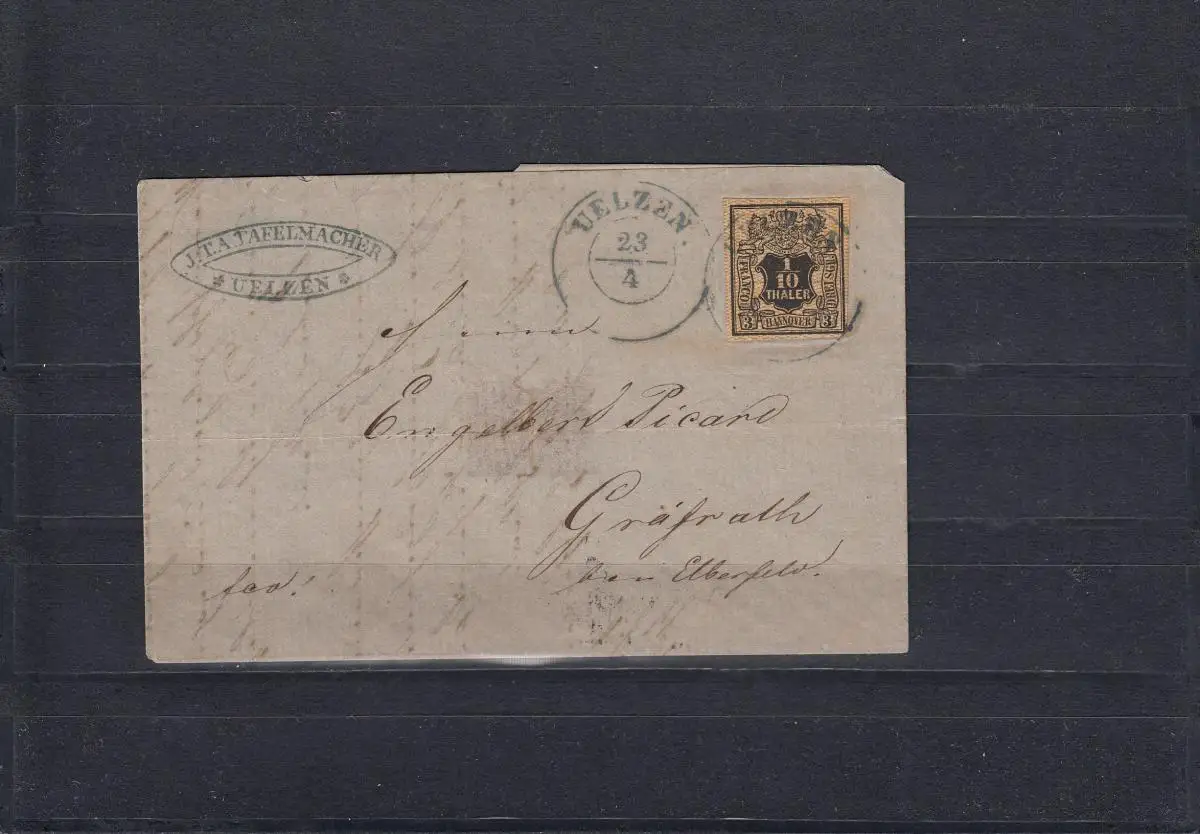 J.T.A TAFELMACHER
UELZEN
UELZEN.
23
4
1
10
THALER
FRANCO
3
HANNOVER
3
Herrn
Engelbert Picard
Gräfrath
bei Elberfeld.